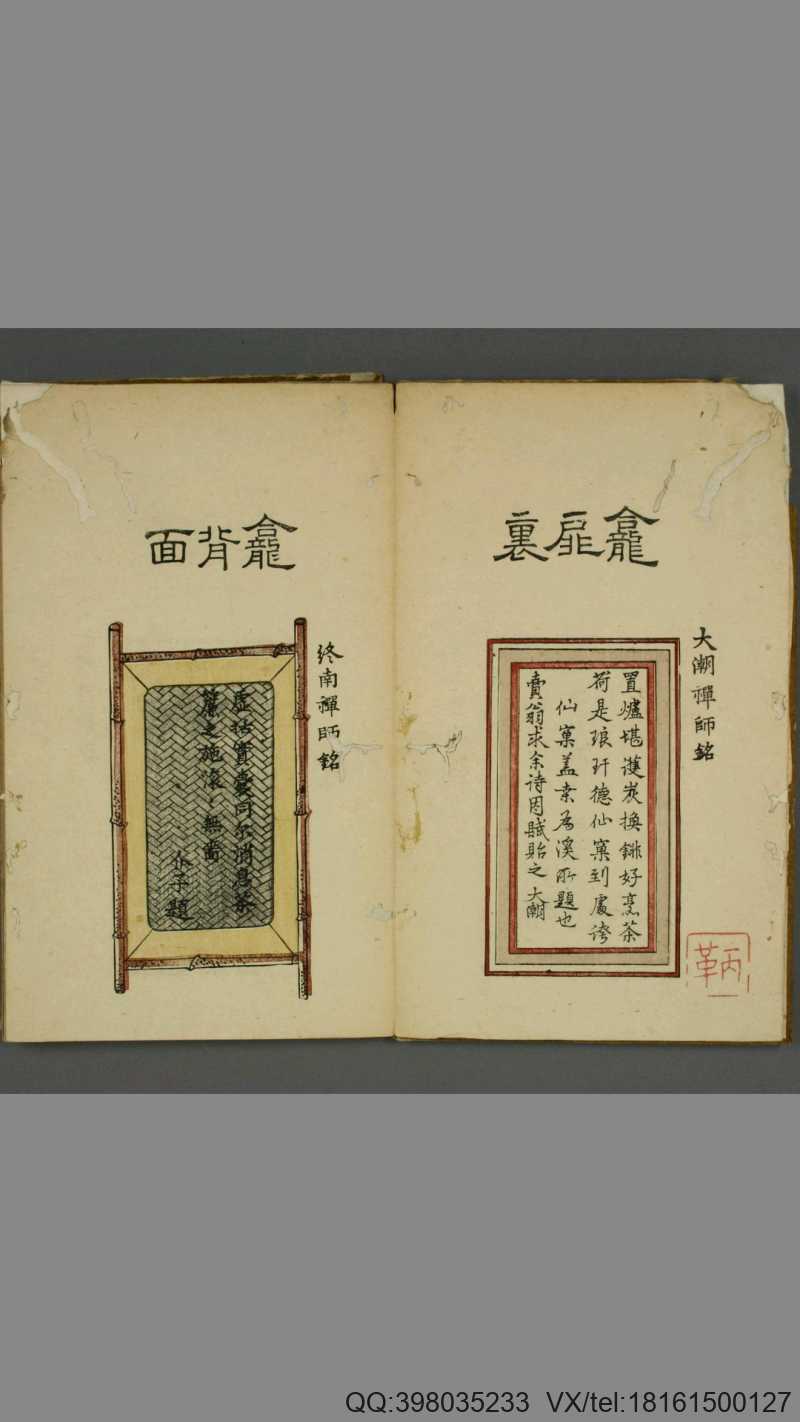 龕扉裏
大潮禪師銘
置爐堪護炭換銚好烹茶
荷是琅玕德仙窠到處誇
仙窠蓋為溪所題也
賣翁求余诗因賦貽之大潮
龕背面
終南禪師銘
虛括實囊同尔消息茶
簾之施滾〻無嗇
子題
QQ:398035233 VX/tel:18161500127